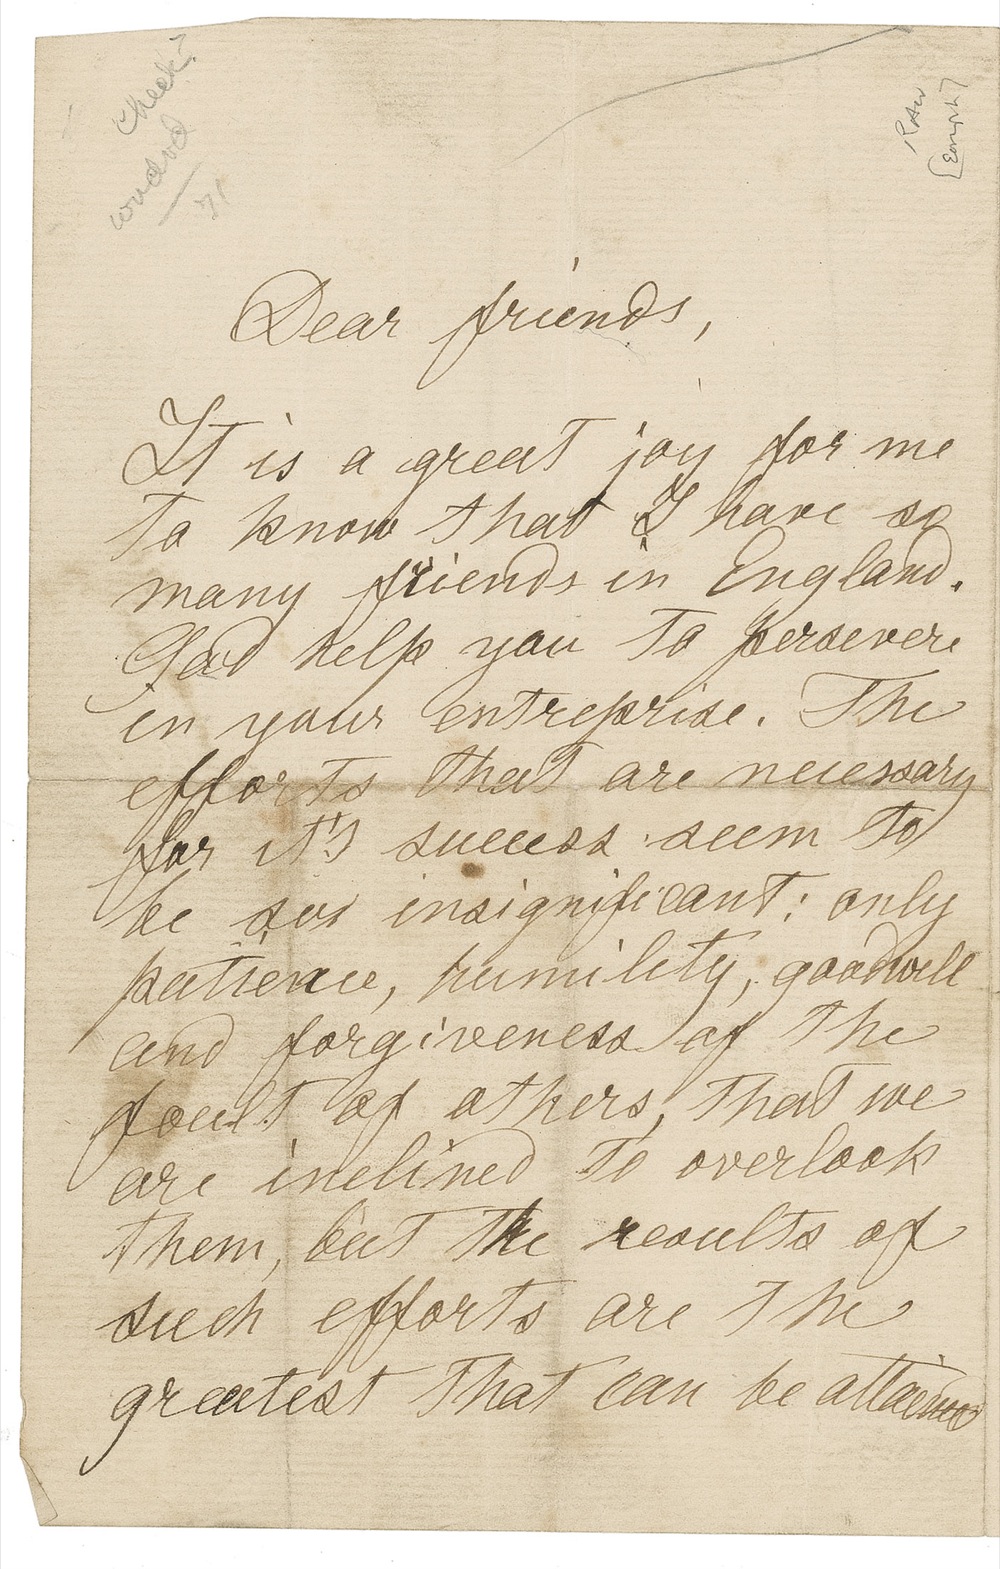 Check?
Dear friends,
It is a great joy for me
to know that I have so
many friends in England.
God help you to persevere
in your entreprise. The
efforts that are necessary
for it's success seem to
be so insignificant: only
patience, humility, goodwill
and forgiveness of the
foult of others, that we
are inclined to overlook
them, but the results of
such efforts are the
greatest that can be attained